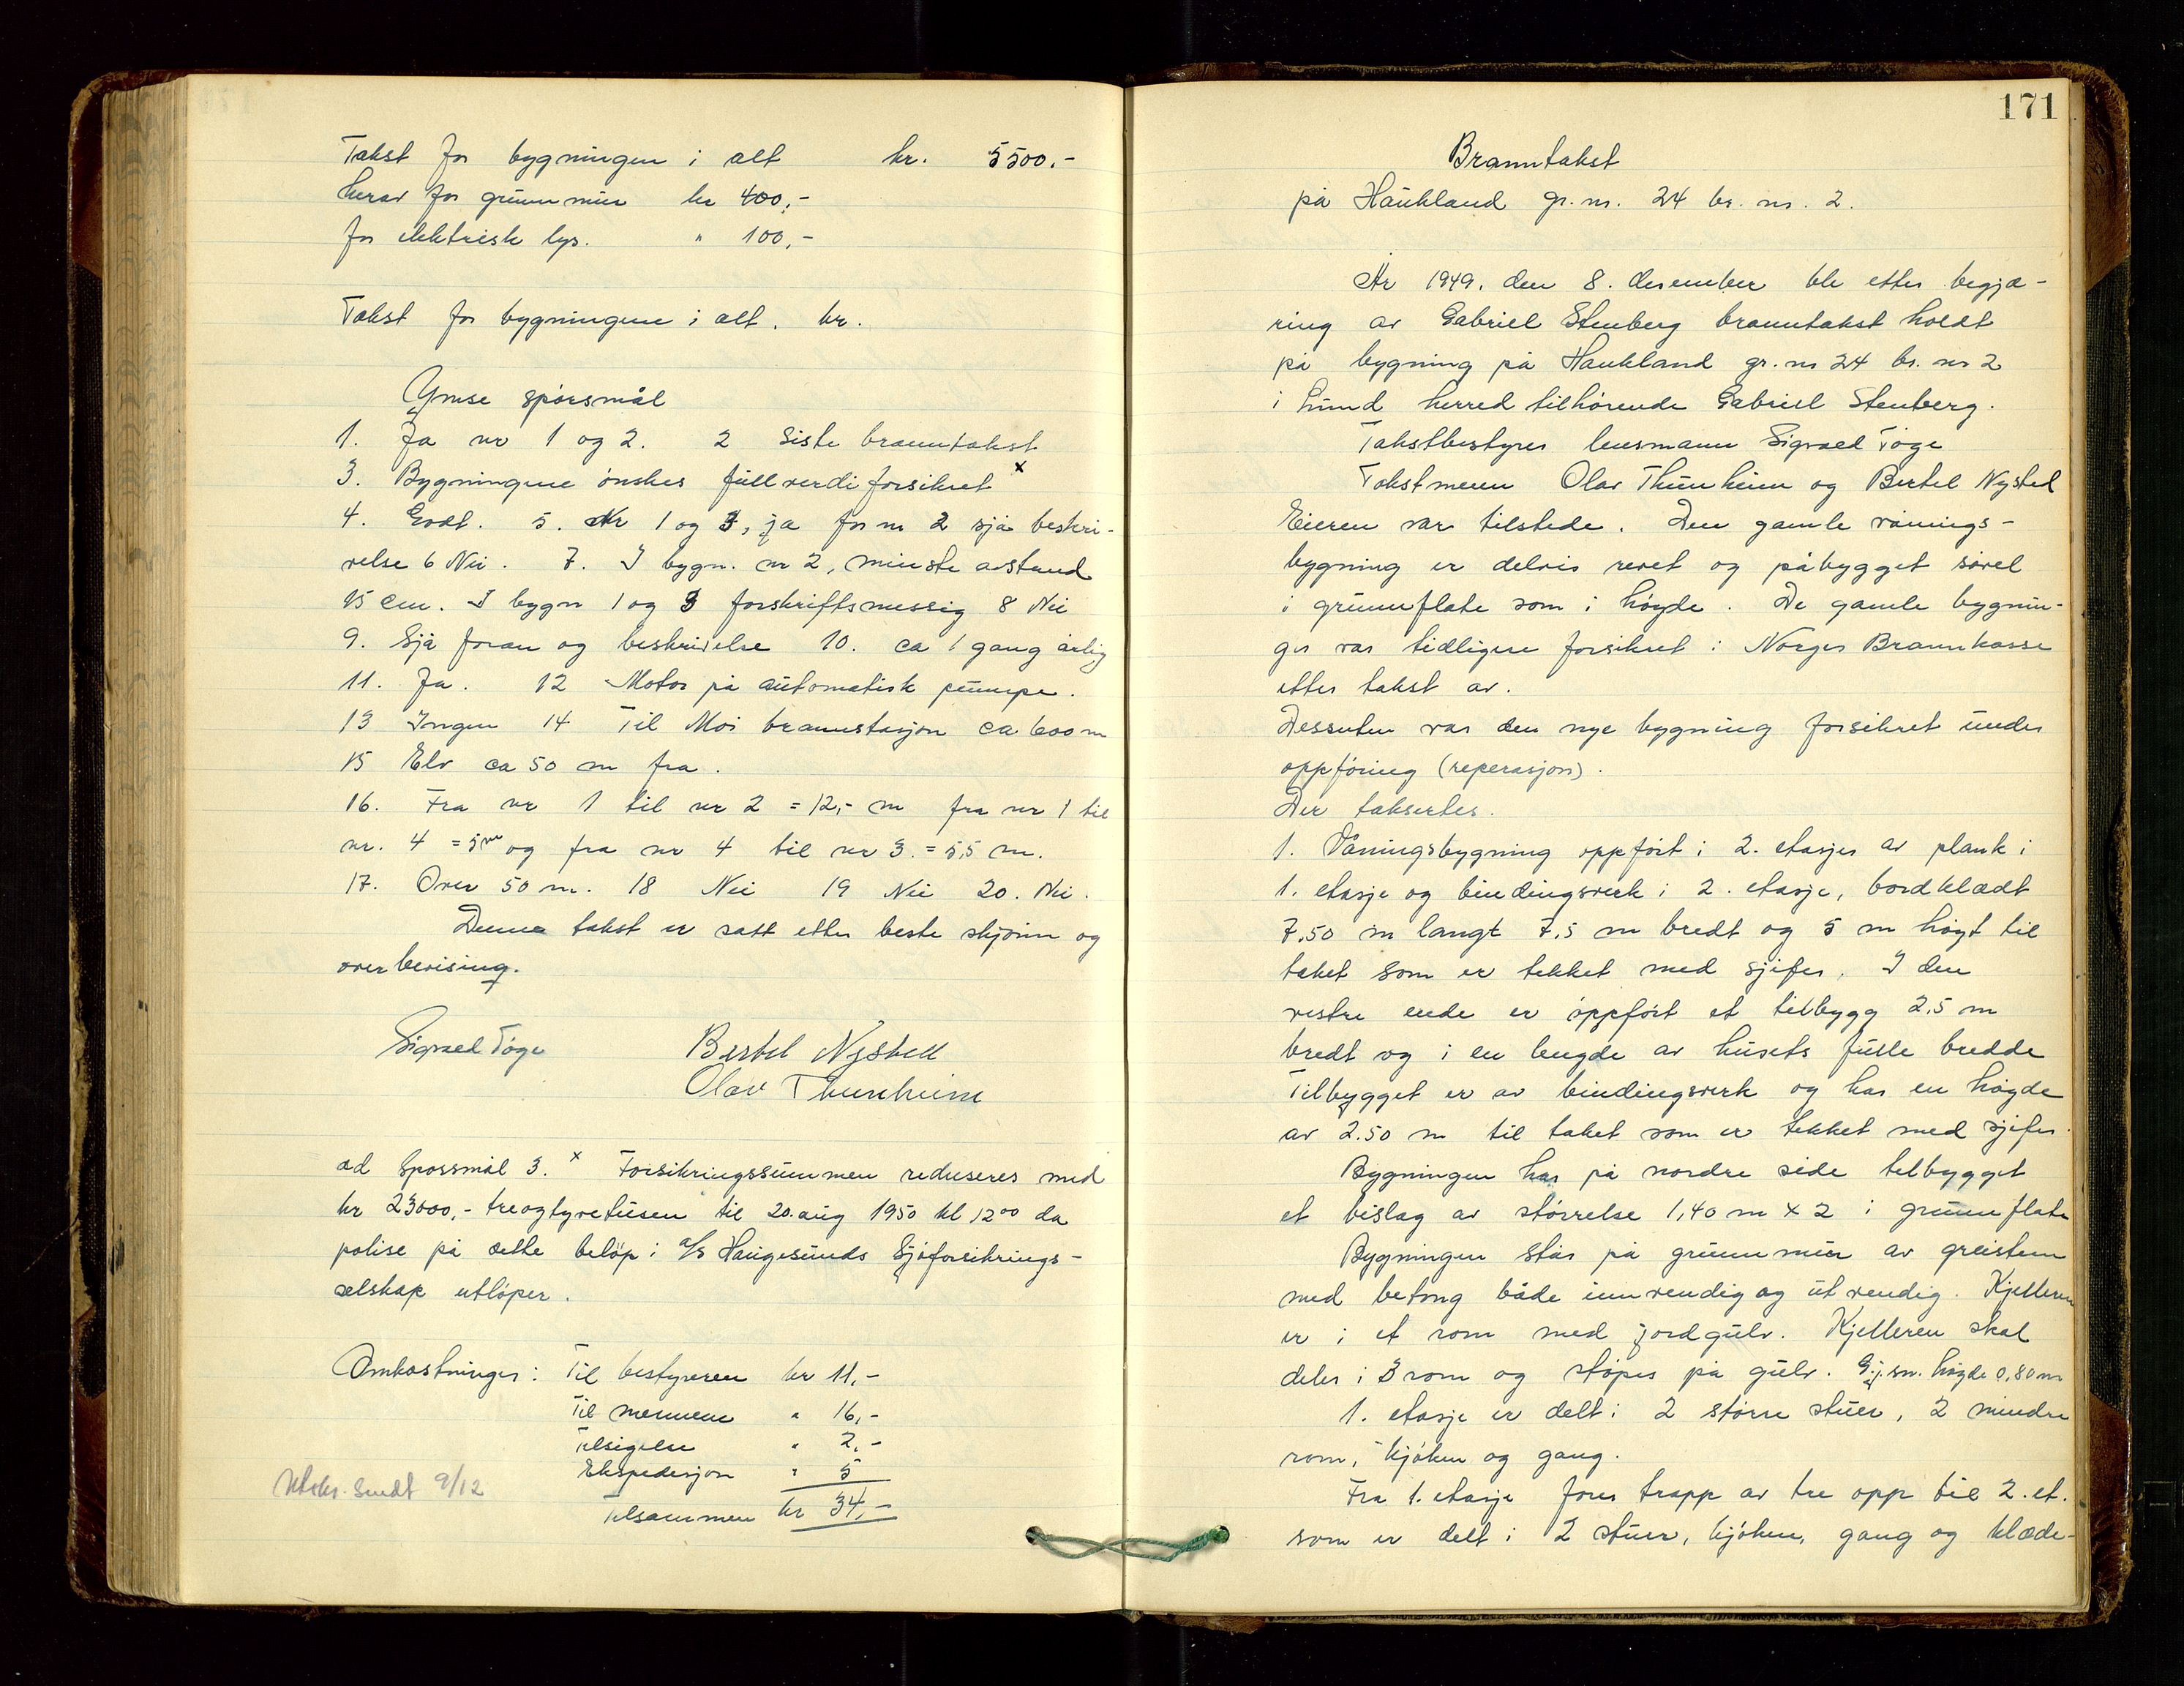 Takst for bygningen i alt kr. 5500.-
herav for grunnmur kr 400,-
for elektrisk lys. " 100,-
Takst for bygningene i alt. kr.
Ymse spørsmål
1. Ja nr 1 og 2. 2 Siste branntakst
3. Bygningene ønskes fullverdiforsikret x
4. Godt. 5. Nr 1 og 3, ja for nr 2 sjå beskri-
velse 6 Nei. 7. I bygn. nr 2, minste avstand
15 cm. I bygn 1 og 3 forskriftsmessig 8 Nei
9. Sjå foran og beskrivelse 10. ca 1 gang årlig
11. Ja. 12 Motor på automatisk pumpe.
13 Ingen 14 Til Moi brannstasjon ca 600 m
15 Elv ca 50 m fra.
16. Fra nr 1 til nr 2 = 12,- m fra nr 1 til
nr. 4 = 5 m og fra nr 4 til nr 3. = 5,5 m.
17. Over 50 m. 18 Nei 19 Nei 20. Nei.
Denne takst er satt etter beste skjønn og
overbevising.
Sigvald Tøge Bertel Nystedt
Olav Thunheim
ad Spørsmål 3. x Forsikringssummen reduseres med
kr 23000,- treogtyvetusen til 20. aug 1950 kl 12 00 da
polise på dette beløp i a/s Haugesunds Sjøforsikrings-
selskap utløper.
Omkostninger: Til bestyreren kr 11,-
Til mennene " 16,-
Tilsigelse " 2,-
Ekspedisjon " 5
Tilsammen kr 34,-
Utskr. sendt 9/12
171
Branntakst
på Haukland gr. nr. 24 br. nr. 2.
År 1949. den 8. desember ble etter begjæ-
ring av Gabriel Stenberg branntakst holdt
på bygning på Haukland gr. nr 24 br. nr 2
i Lund herred tilhørende Gabriel Stenberg.
Takstbestyrer lensmann Sigvald Tøge
Takstmenn Olav Thunheim og Bertel Nysted
Eieren var tilstede. Den gamle vånings-
bygning er delvis revet og påbygget såvel
i grunnflate som i høyde. De gamle bygnin-
ger var tidligere forsikret i Norges Brannkasse
etter takst av.
Dessuten var den nye bygning forsikret under
oppføring (reperasjon).
Der taksertes.
1. Våningsbygning oppført i 2. etasjer av plank i
1. etasje og bindingsverk i 2. etasje, bordklædt
7,50 m langt 7,5 m bredt og 5 m høgt til
taket som er tekket med sjifer. I den
vestre ende er oppført et tilbygg 2,5 m
bredt og i en lengde av husets fulle bredde
Tilbygget er av bindingsverk og har en høgde
av 2.50 m til taket som er tekket med sjifer.
Bygningen har på nordre side tilbygget
et bislag av størrelse 1,40 m x 2 i grunnflate
Bygningen står på grunnmur av gråstein
med betong både innvendig og utvendig. Kjelleren
er i et rom med jordgulv. Kjelleren skal
deles i 3 rom og støpes på gulv. Gj. sn. høgde 0,80 m
1. etasje er delt i 2 større stuer, 2 mindre
rom, kjøken og gang.
Fra 1. etasje fører trapp av tre opp til 2. et.
som er delt i 2 stuer, kjøken, gang og klæde-